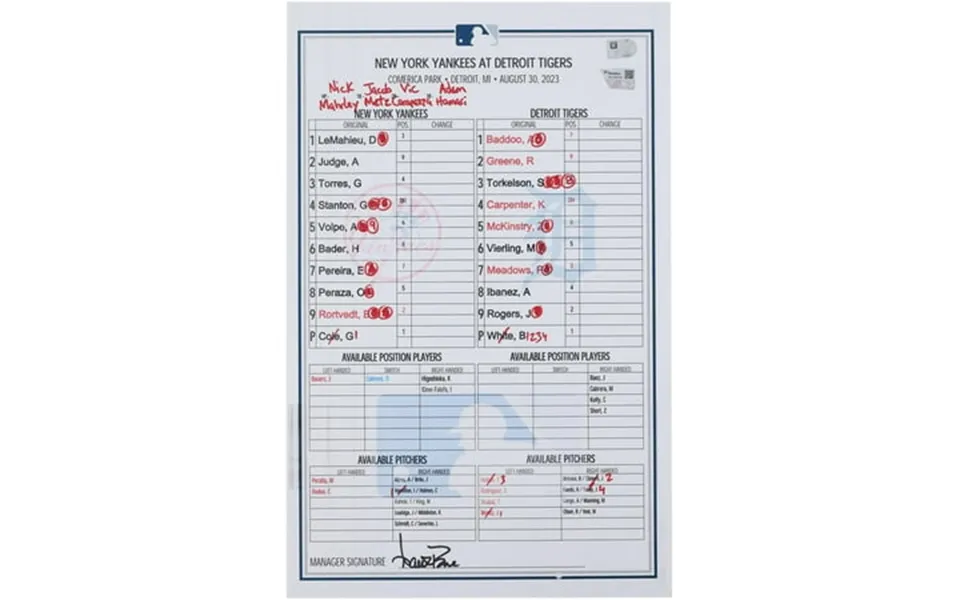 NEW YORK YANKEES AT DETROIT TIGERS
COMERICA PARK • DETROIT, MI • AUGUST 30, 2023
Nick Jacob Vic Adam
Mahrley Metz Carapazza Hamari
NEW YORK YANKEES
ORIGINAL POS. CHANGE
1 LeMahieu, D 3
2 Judge, A 9
3 Torres, G 4
4 Stanton, G DH
5 Volpe, A 6
6 Bader, H 8
7 Pereira, E 7
8 Peraza, O 5
9 Rortvedt, B 2
P Cole, G 1
DETROIT TIGERS
ORIGINAL POS. CHANGE
1 Baddoo, A 7
2 Greene, R
3 Torkelson, S
4 Carpenter, K DH
5 McKinstry, Z 6
6 Vierling, M 5
7 Meadows, P
8 Ibanez, A 4
9 Rogers, J 2
P White, B 1 234
AVAILABLE POSITION PLAYERS
LEFT-HANDED SWITCH RIGHT-HANDED
Bauers, J Cabrera, O Higashioka, K
Kiner-Falefa, I
AVAILABLE POSITION PLAYERS
LEFT-HANDED SWITCH RIGHT-HANDED
Baez, J
Cabrera, M
Kelly, C
Short, Z
AVAILABLE PITCHERS
LEFT-HANDED RIGHT-HANDED
Peralta, W
Rodon, C
Kahnle, T / King, M
Loaisiga, J / Middleton, K
Schmidt, C / Severino, L
AVAILABLE PITCHERS
LEFT-HANDED RIGHT-HANDED
3
2
Rodriguez, E
4
Skubal, T
Lange, A / Manning, M
Olson, R / Vest, W
MANAGER SIGNATURE